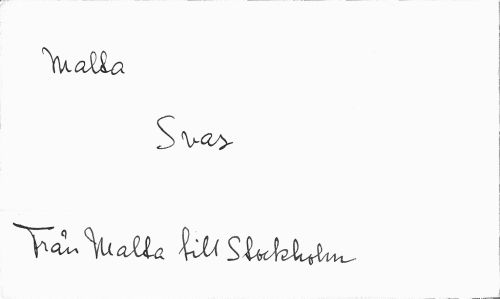 Malta
Svar
Från Malta till Stockholm